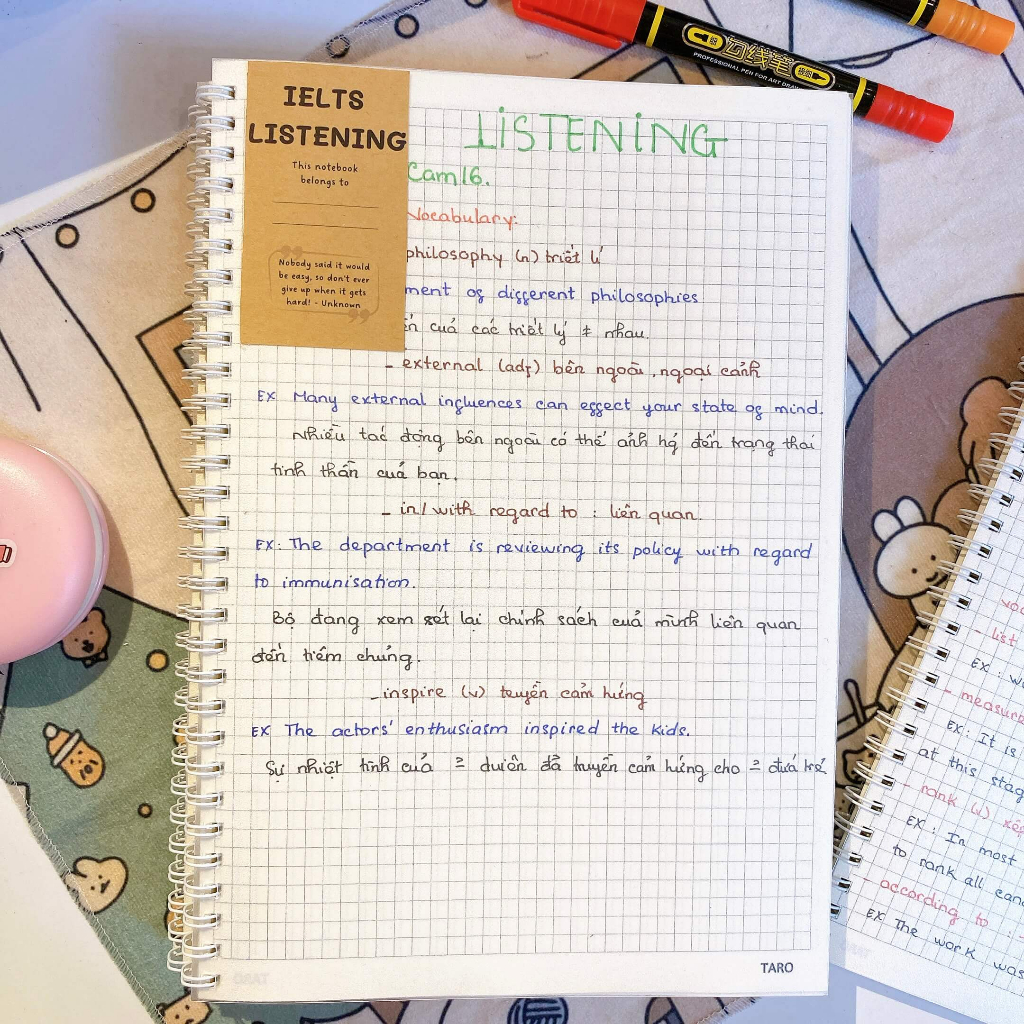 IELTS
LISTENING
This notebook
belongs to
Nobody said it would
be easy, so don't ever
give up when it gets
hard! - Unknown
LISTENING
Cam 16.
Vocabulary:
philosophy (n) triết lí
ment of different philosophies
ển cuả các triết lý ≠ nhau.
- external (adj) bên ngoài, ngoại cảnh
EX Many external influences can effect your state of mind.
nhiều tác động bên ngoài có thể ảnh hg đến trạng thái
tinh thần cuả bạn.
- in/with regard to : liên quan.
EX: The department is reviewing its policy with regard
to immunisation.
Bộ đang xem xét lại chính sách cuả mình liên quan
đến tiêm chủng.
- inspire (v) truyền cảm hứng
EX The actors' enthusiasm inspired the kids.
Sự nhiệt tình cuả = duiên đã truyền cảm hứng cho = đứa trẻ
TARO
勾线笔
PROFESSIONAL PEN FOR ART DRAW
- list
EX : we
- measura
EX: It is
at this stag
- rank (v) xếp
EX : In most
to rank all can
according to :
EX The work was